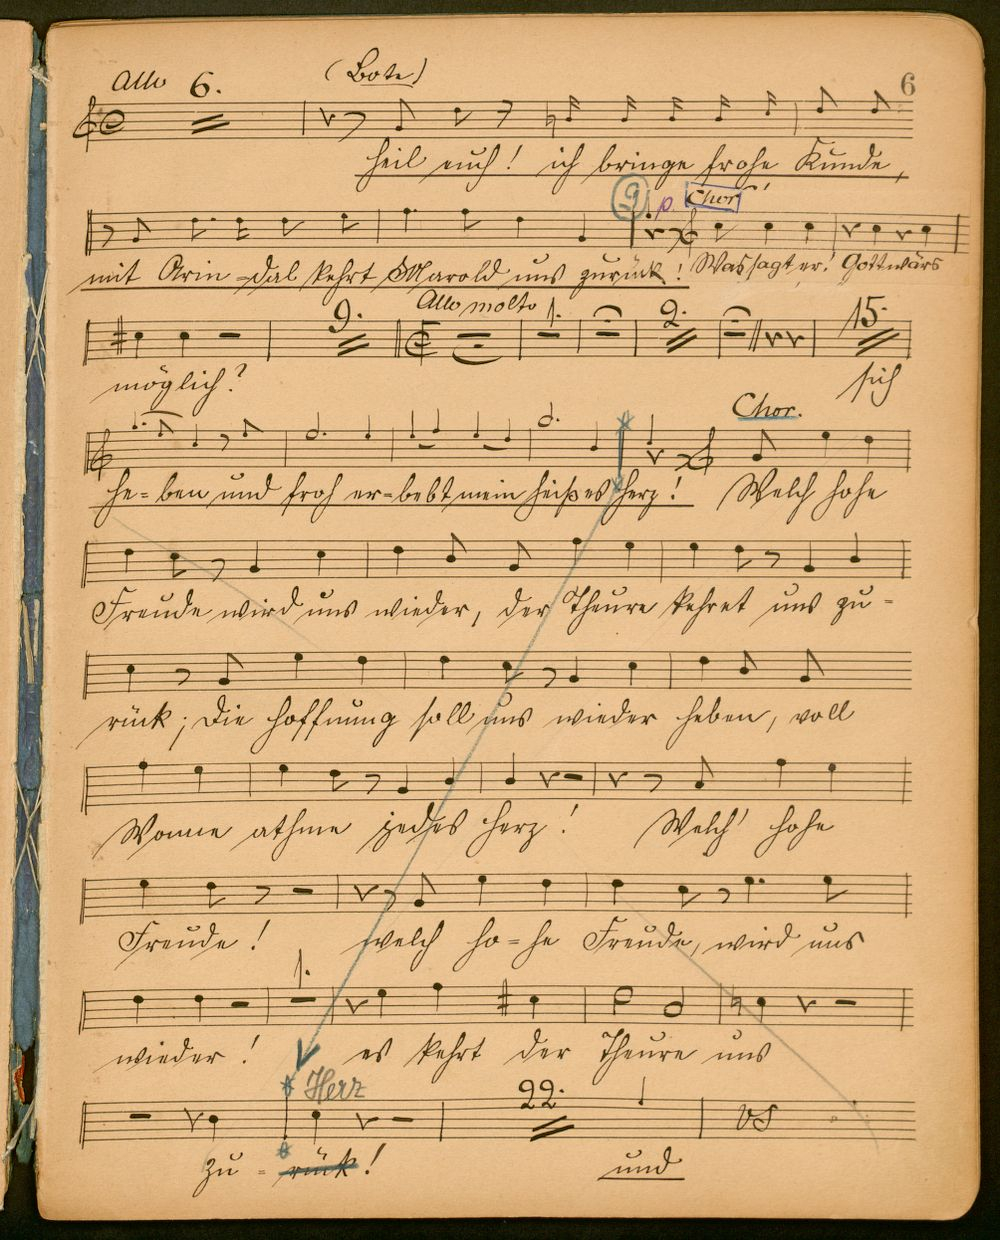 Allo 6. (Bote) 6
Heil euch! ich bringe frohe Kunde,
9 p. Chor
mit Arin-dal kehrt Marold uns zurück! Was sagt er! Gott wärs
9. Allo molto 1. 2. 15.
möglich? sich
Chor.
he-ben und froh er-bebt mein heißes Herz! Welch hohe
Freude wird uns wieder, der Theure kehret uns zu-
rück; Die Hoffnung soll uns wieder heben, voll
Wonne athme jedes Herz! Welch' hohe
Freude! welch ho-he Freude, wird uns
1.
wieder! es kehrt der Theure uns
Herz 22. VS
zu-rück! und